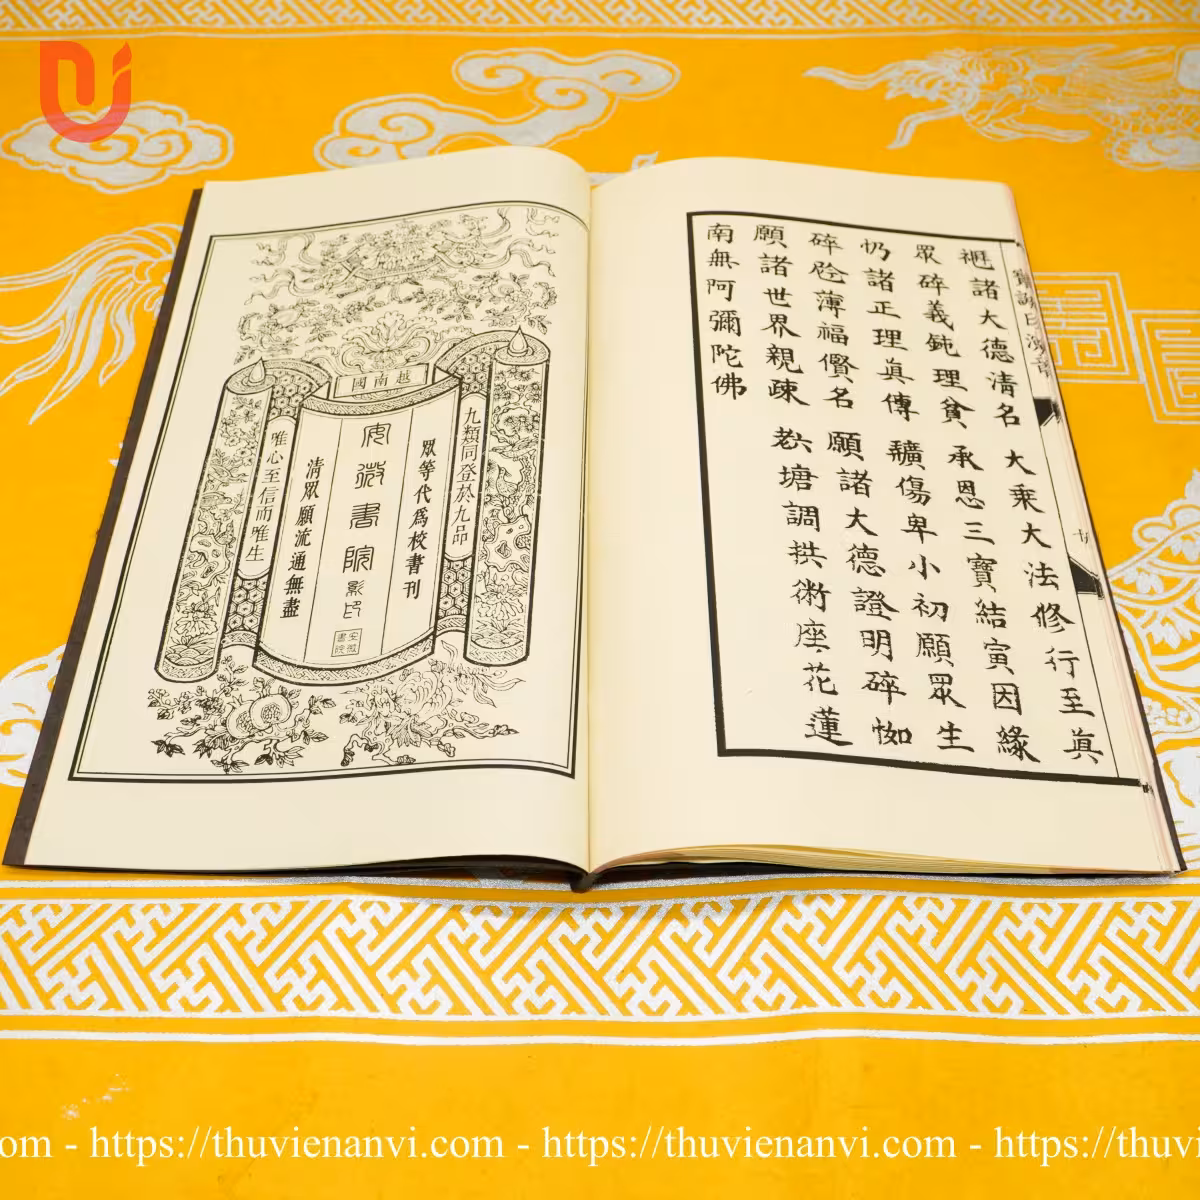 諸大德清名 大乘大法修行至眞
眾碎義鈍理貧 承恩三寶結寅因緣
扔諸正理眞傳 傷卑小初願眾生
碎 薄福 名 願諸大德證明碎㤎
願諸世界親疎 塘調拱術座花蓮
南無阿彌陀佛
十
越南國
九類同登於九品
眾等代爲校書刊
安微書院影印
安微書院
清眾願流通無盡
唯心至信而唯生
om - https://thuvienanvi.com - https://thuvienanvi.com - https://thuvi